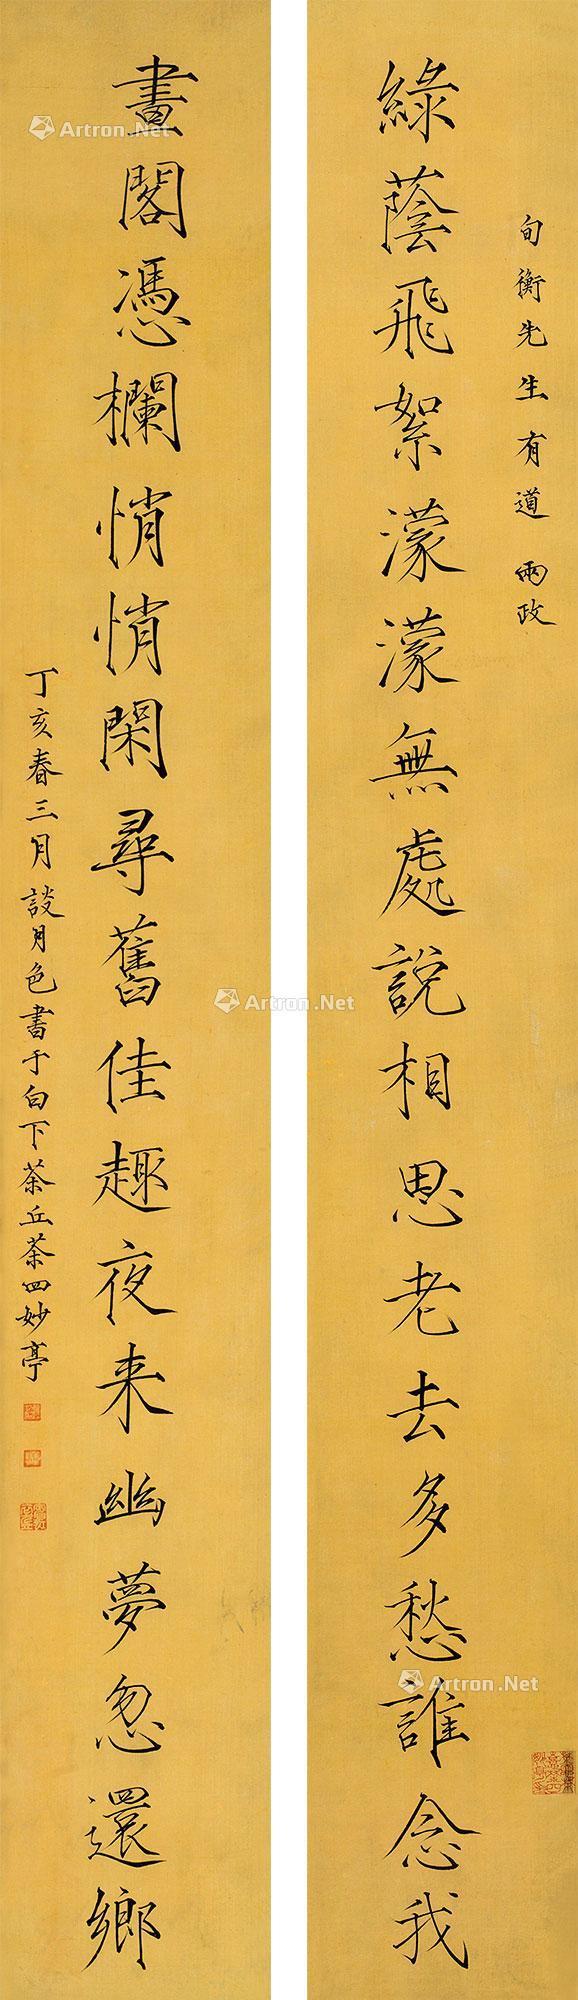 旬衡先生有道 兩政
綠蔭飛絮濛濛無處說相思老去多愁誰念我
畫閣憑欄悄悄閑尋舊佳趣夜来幽夢忽還鄉
丁亥春三月談月色書于白下茶丘茶四妙亭
Artron.Net
Artron.Net
Artron.Net
Artron.Net